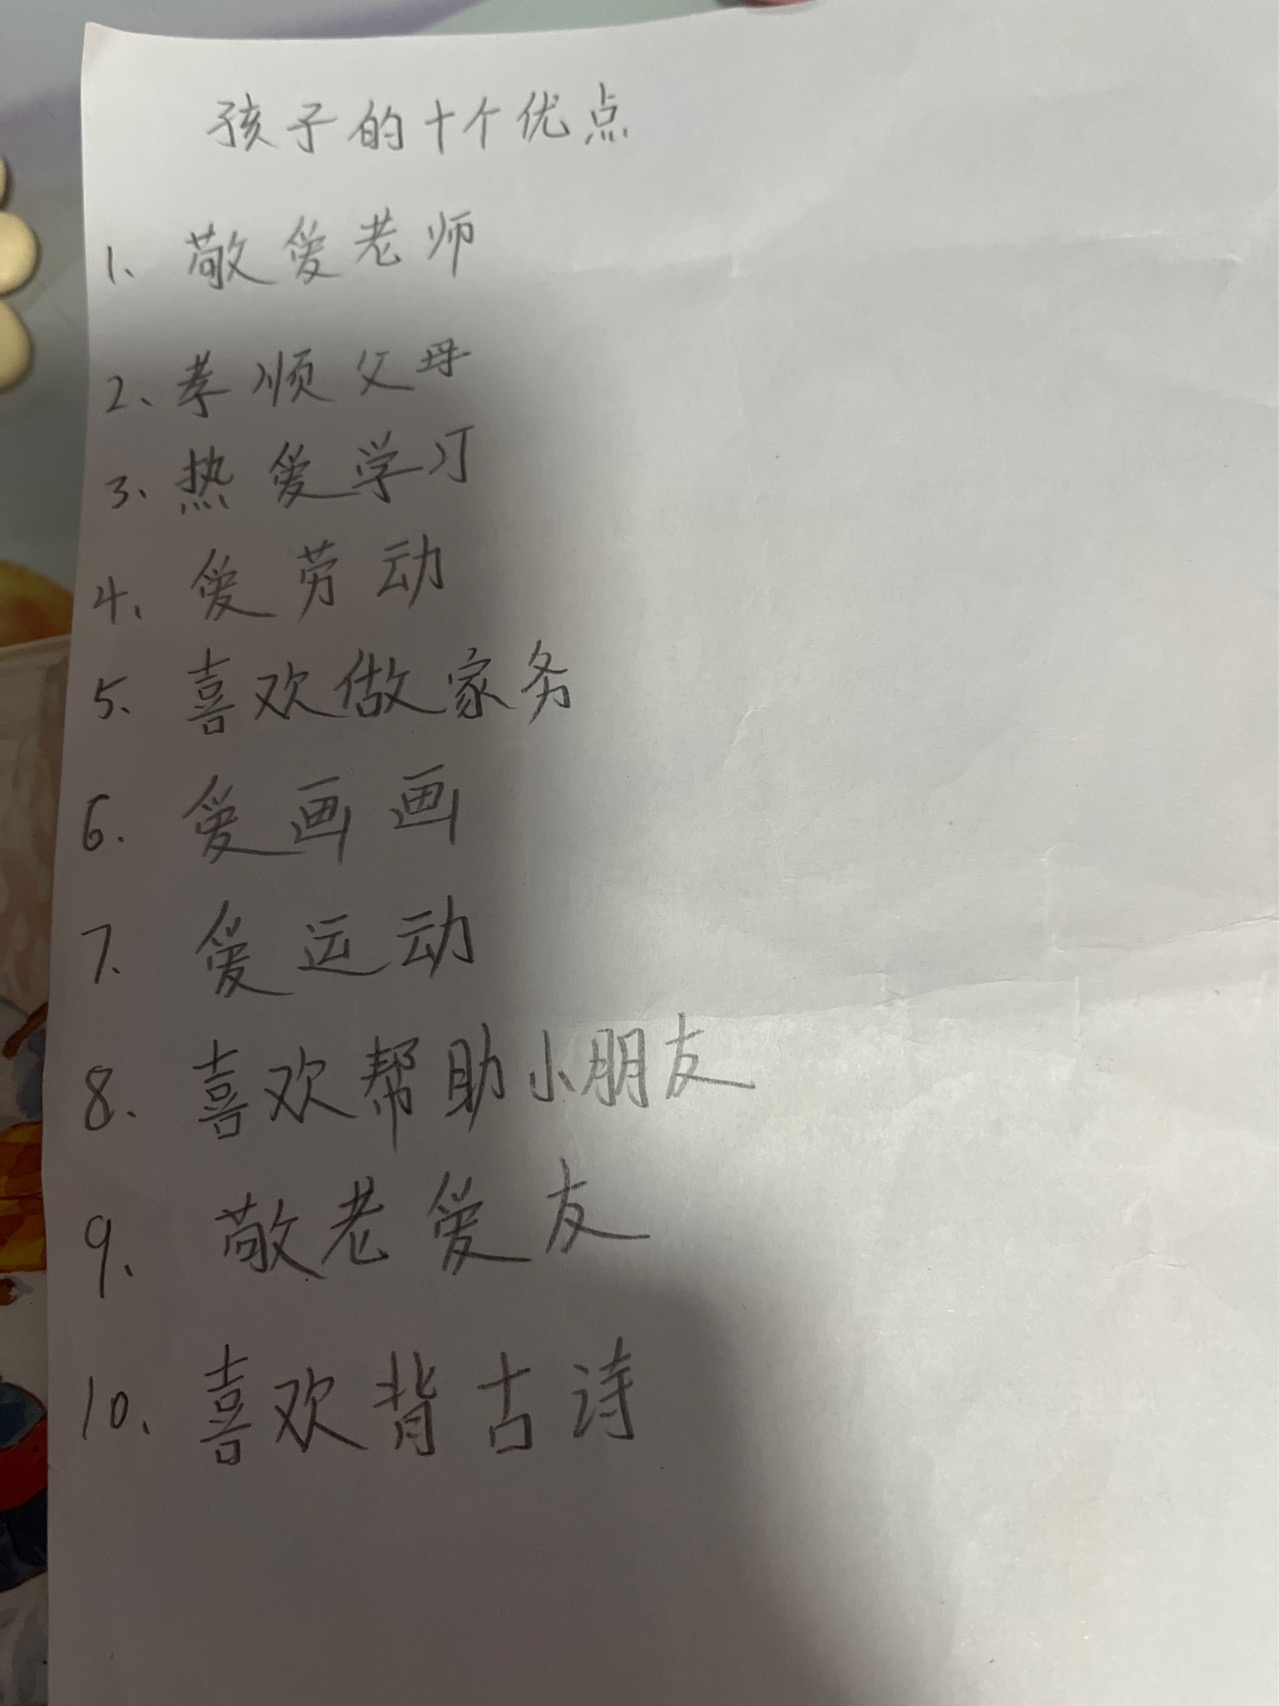 孩子的十个优点
1、敬爱老师
2、孝顺父母
3、热爱学习
4、爱劳动
5、喜欢做家务
6、爱画画
7、爱运动
8、喜欢帮助小朋友
9、敬老爱友
10、喜欢背古诗